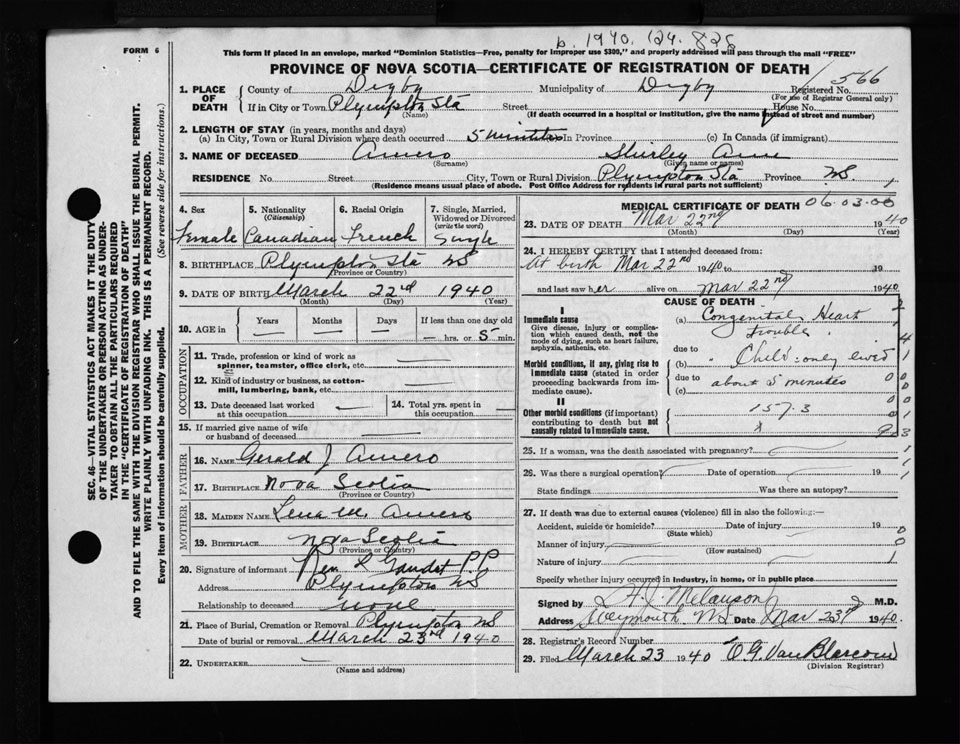 b. 1940. 124. 828
FORM 6
This form if placed in an envelope, marked "Dominion Statistics—Free, penalty for improper use $300," and properly addressed will pass through the mail "FREE"
PROVINCE OF NOVA SCOTIA—CERTIFICATE OF REGISTRATION OF DEATH
1. PLACE OF DEATH County of Digby Municipality of Digby Registered No. 566
(For use of Registrar General only)
If in City or Town Plympton Sta Street House No.
(Name) (If death occurred in a hospital or institution, give the name instead of street and number)
2. LENGTH OF STAY (in years, months and days)
(a) In City, Town or Rural Division where death occurred 5 minutes In Province (c) In Canada (if immigrant)
3. NAME OF DECEASED Amero Shirley Ann
(Surname) (Given name or names)
RESIDENCE No. Street City, Town or Rural Division Plympton Sta Province NS.
(Residence means usual place of abode. Post Office Address for residents in rural parts not sufficient)
4. Sex 5. Nationality (Citizenship) 6. Racial Origin 7. Single, Married, Widowed or Divorced (write the word)
Female Canadian French Single
8. BIRTHPLACE Plympton Sta NS
(Province or Country)
9. DATE OF BIRTH March 22nd 1940
(Month) (Day) (Year)
10. AGE in Years Months Days If less than one day old
— — — — hrs. or 5 min.
OCCUPATION
11. Trade, profession or kind of work as spinner, teamster, office clerk, etc.
12. Kind of industry or business, as cotton-mill, lumbering, bank, etc.
13. Date deceased last worked at this occupation 14. Total yrs. spent in this occupation
15. If married give name of wife or husband of deceased
FATHER
16. NAME Gerald J Amero
17. BIRTHPLACE Nova Scotia
(Province or Country)
MOTHER
18. MAIDEN NAME Lena M. Amero
19. BIRTHPLACE Nova Scotia
(Province or Country)
20. Signature of informant Rev L Gaudet P.P.
Address Plympton NS
Relationship to deceased none
21. Place of Burial, Cremation or Removal Plympton NS
Date of burial or removal March 23rd 1940
22. UNDERTAKER
(Name and address)
MEDICAL CERTIFICATE OF DEATH 06.03.00
23. DATE OF DEATH Mar 22nd 1940
(Month) (Day) (Year)
24. I HEREBY CERTIFY that I attended deceased from:
At birth Mar 22nd 1940 to 19
and last saw her alive on Mar 22nd 1940
CAUSE OF DEATH
I
Immediate cause
Give disease, injury or complication which caused death, not the mode of dying, such as heart failure, asphyxia, asthenia, etc.
(a) Congenital Heart trouble
due to
Morbid conditions, if any, giving rise to immediate cause (stated in order proceeding backwards from immediate cause).
(b) Child only lived
due to
(c) about 5 minutes
II
Other morbid conditions (if important) contributing to death but not causally related to immediate cause.
157.3
25. If a woman, was the death associated with pregnancy?
26. Was there a surgical operation? Date of operation 19
State findings Was there an autopsy?
27. If death was due to external causes (violence) fill in also the following:—
Accident, suicide or homicide? Date of injury 19
(State which)
Manner of injury
(How sustained)
Nature of injury
Specify whether injury occurred in industry, in home, or in public place
Signed by A. J. Melanson M.D.
Address Weymouth NS Date Mar 23rd 1940.
28. Registrar's Record Number
29. Filed March 23 1940 E G. Van Blarcom
(Division Registrar)
SEC. 46—VITAL STATISTICS ACT MAKES IT THE DUTY OF THE UNDERTAKER OR PERSON ACTING AS UNDERTAKER TO OBTAIN ALL THE PARTICULARS REQUIRED IN THE "CERTIFICATE OF REGISTRATION OF DEATH" AND TO FILE THE SAME WITH THE DIVISION REGISTRAR WHO SHALL ISSUE THE BURIAL PERMIT.
WRITE PLAINLY WITH UNFADING INK. THIS IS A PERMANENT RECORD.
Every item of information should be carefully supplied. (See reverse side for instructions.)